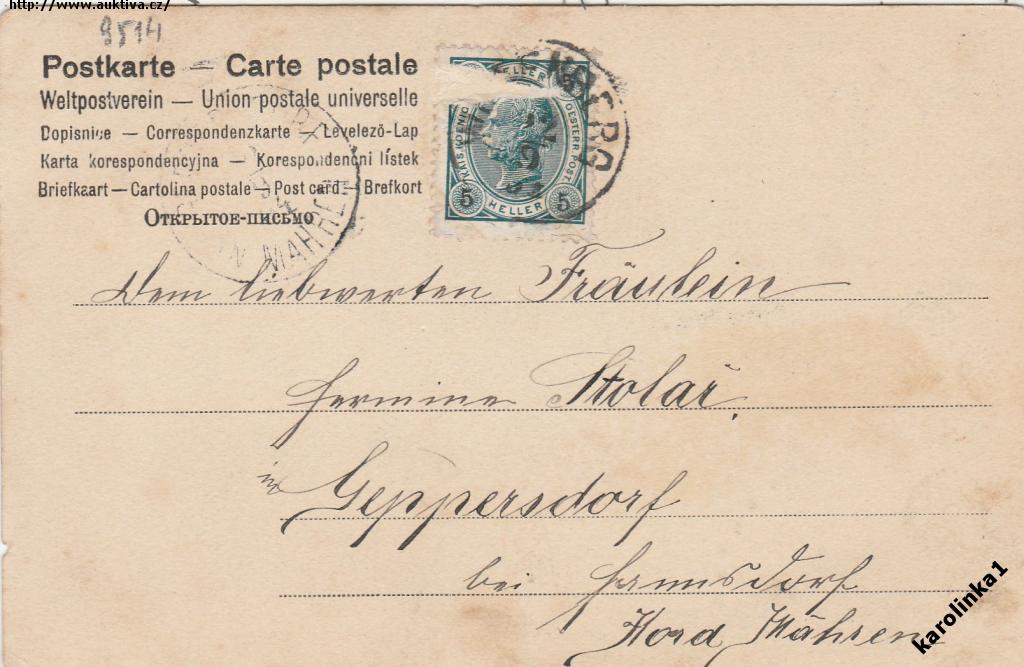 http://www.auktiva.cz/
9514
Postkarte – Carte postale
Weltpostverein – Union postale universelle
Dopisnice – Correspondenzkarte – Levelező-Lap
Karta korespondencyjna – Korespondenční lístek
Briefkaart – Cartolina postale – Post card – Brefkort
Открытое-письмо
MÄHREN
HELLER
KAIS. KOENIG. OESTERR. POST
5 HELLER 5
12
9
Dem liebwerten Fräulein
Hermine Stolař,
in Geppersdorf
bei Hannsdorf
Nord Mähren
karolinka1